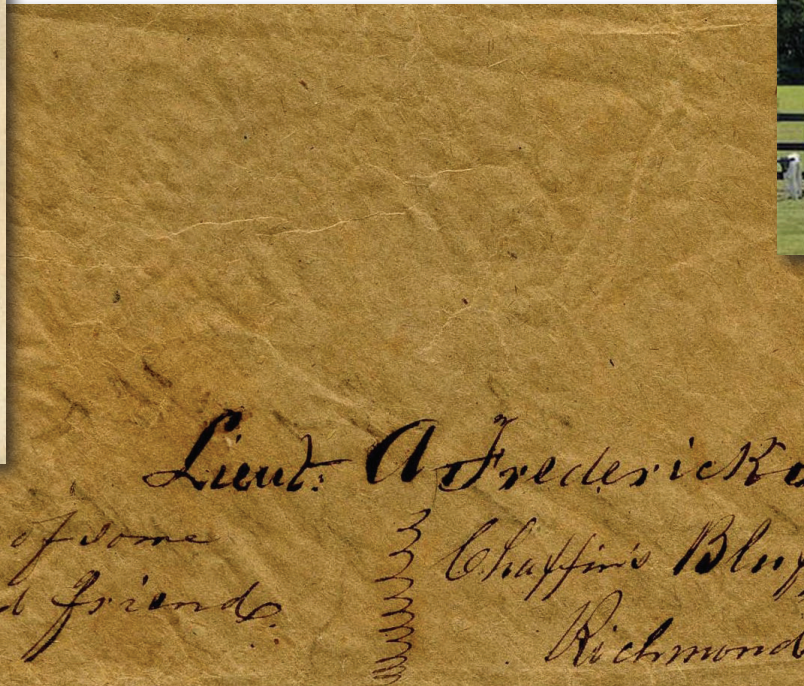 Lieut. A Frederick
of some
friend
Chaffin's Bluf
Richmond